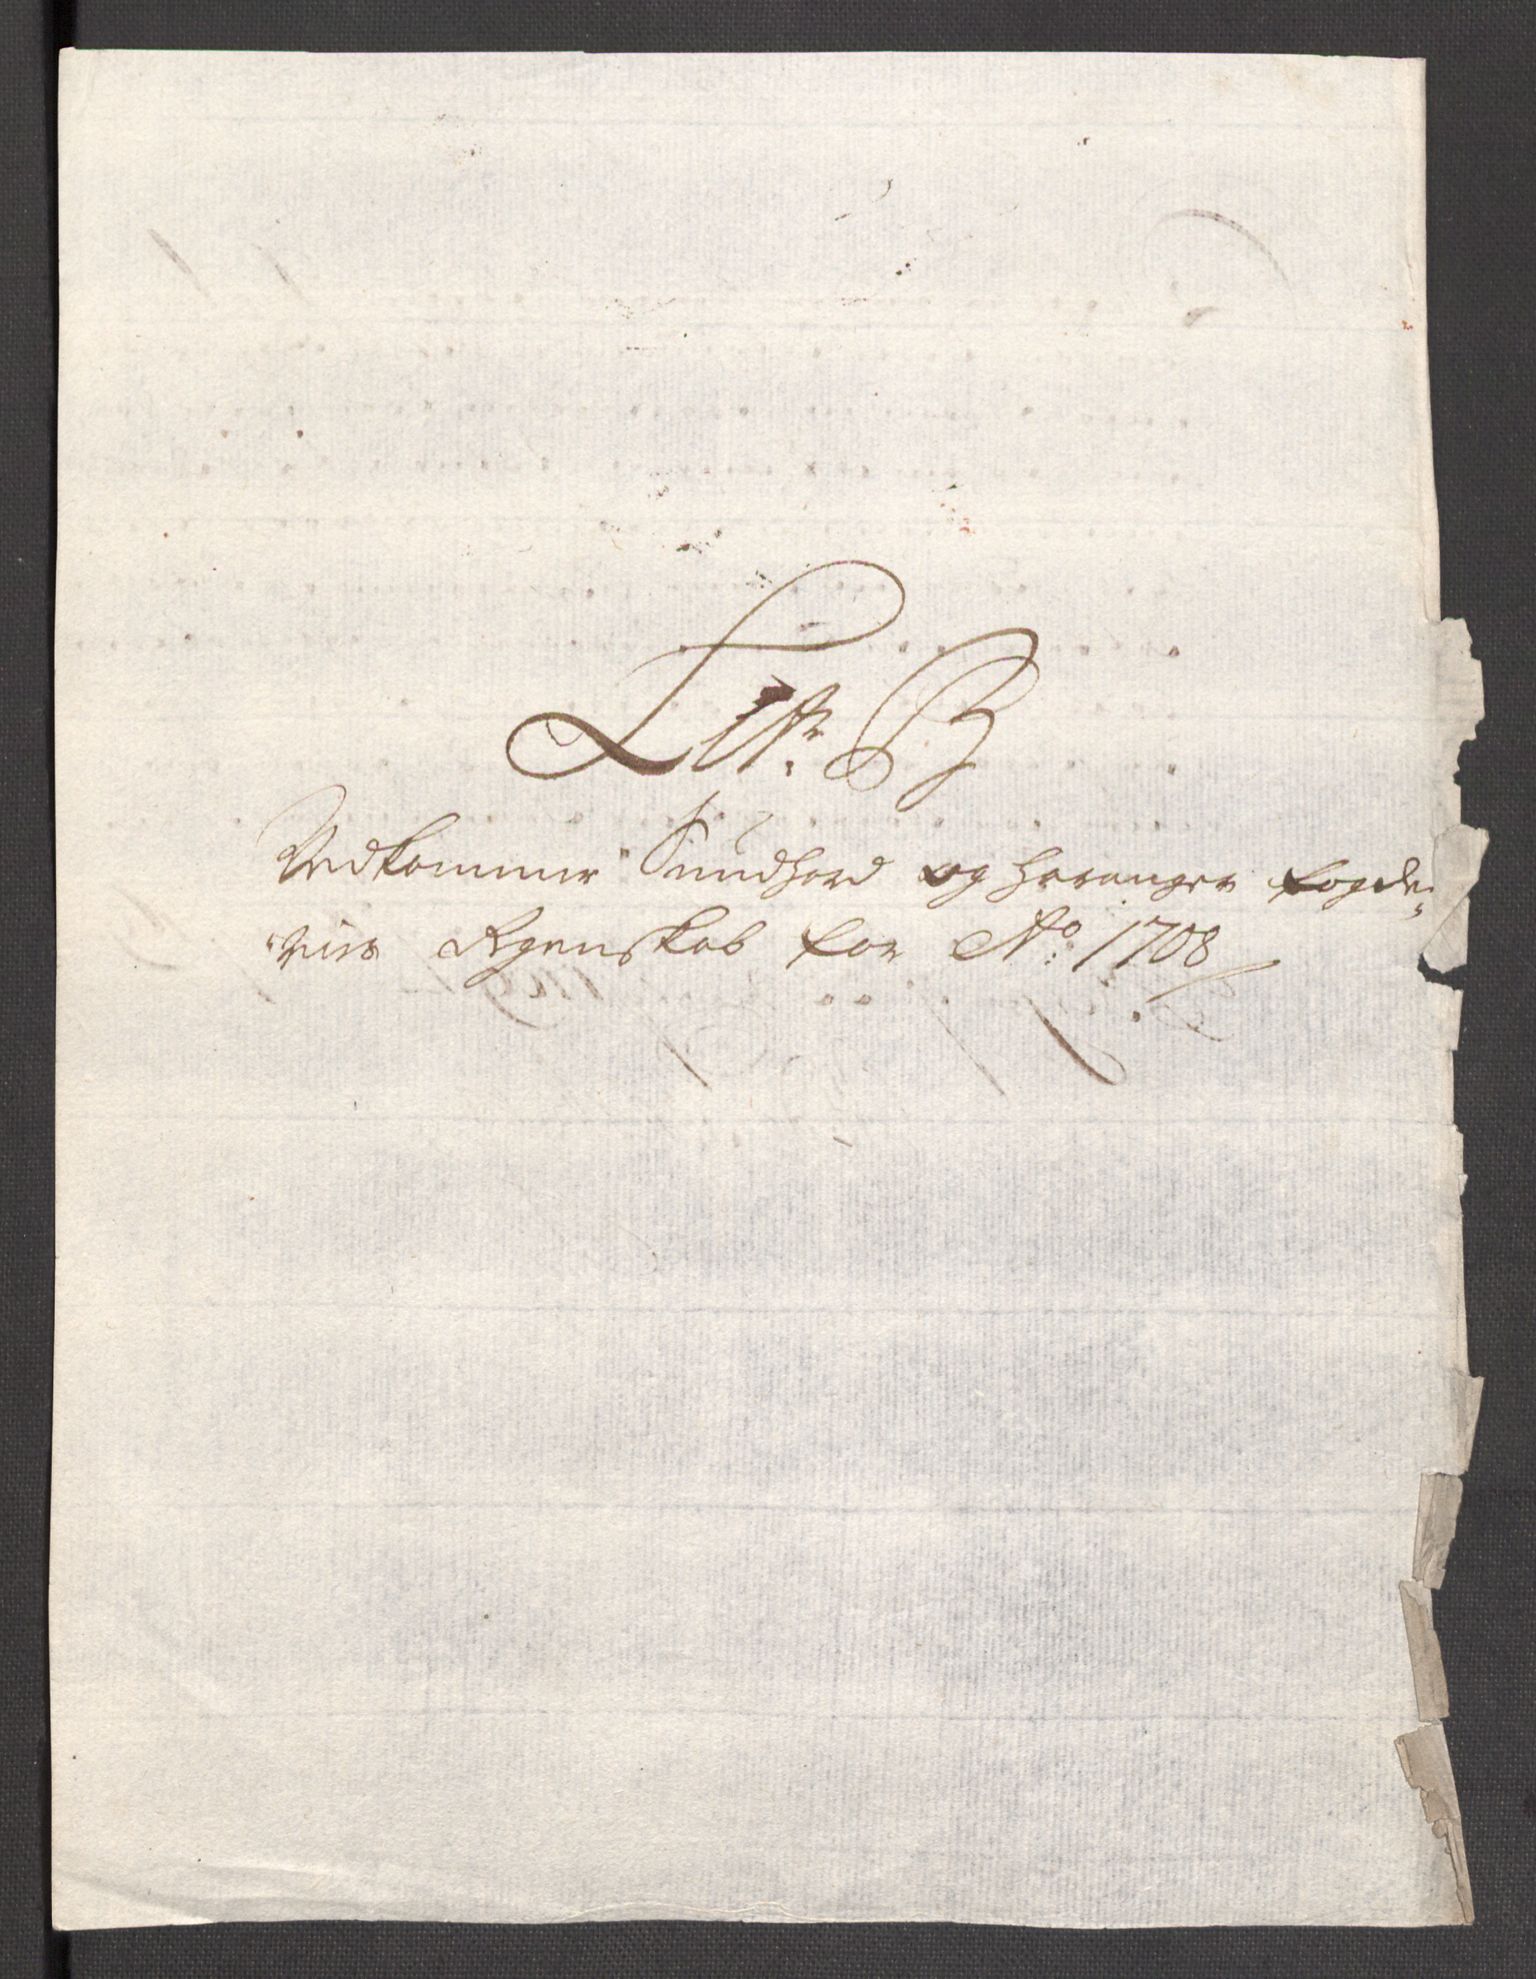 Litr. B
Vedkommer Sundhord og haranger fogde„
„riis Regenskab for Ao: 1708